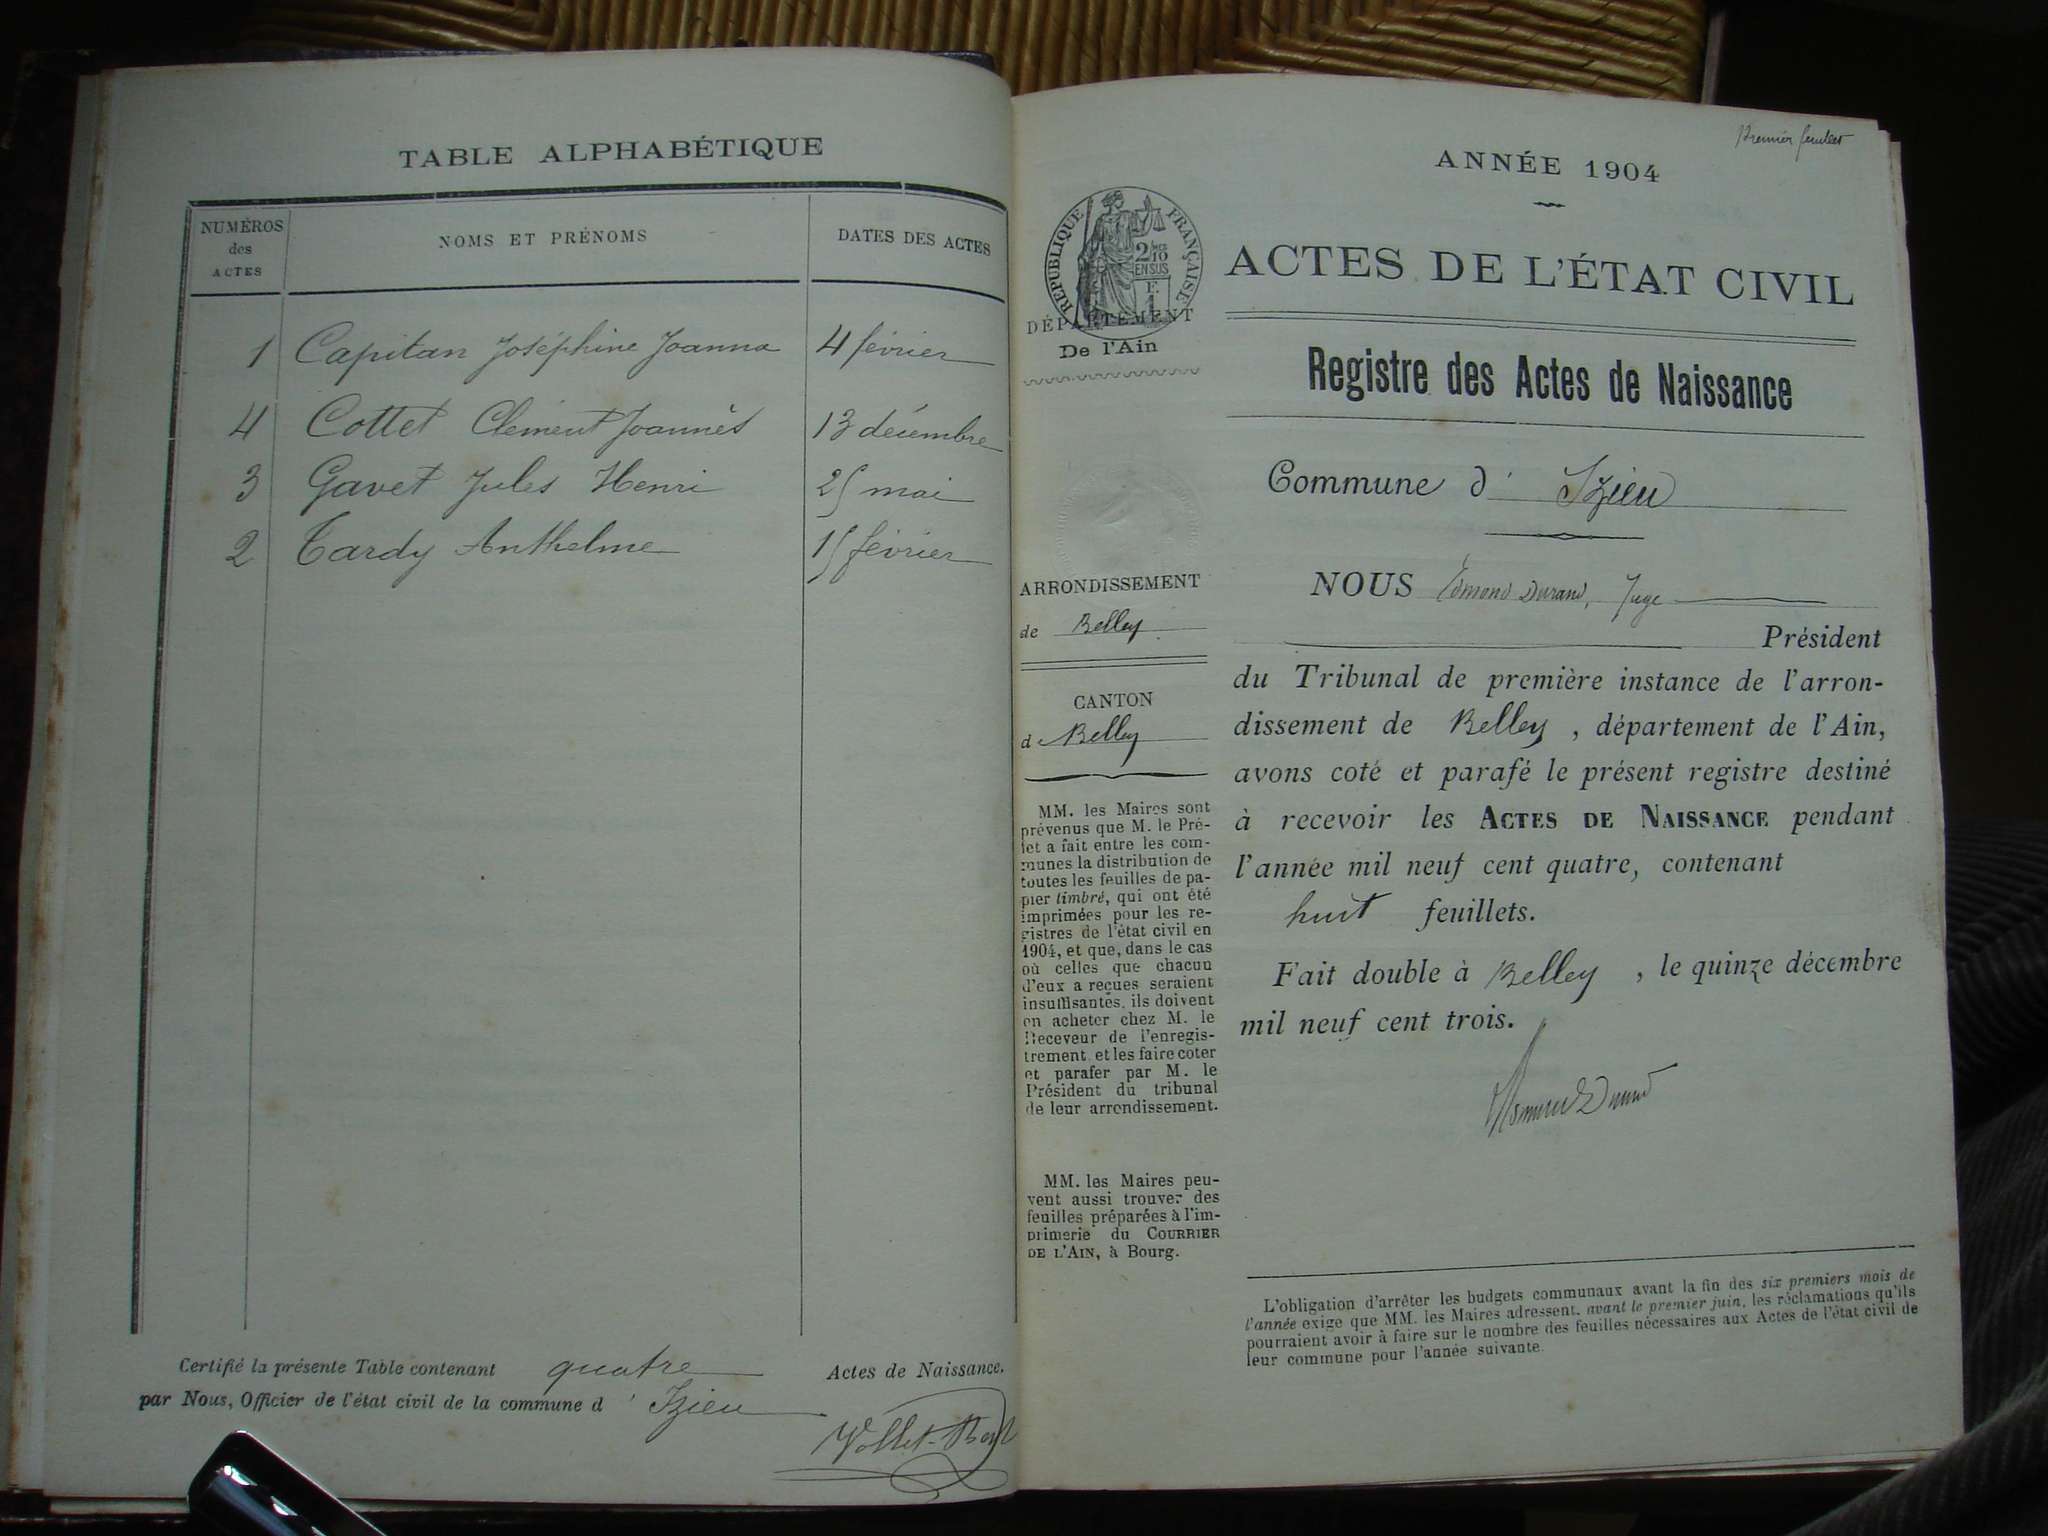 TABLE ALPHABÉTIQUE
NUMÉROS
des
ACTES
NOMS ET PRÉNOMS
DATES DES ACTES
1 Capitan Joséphine Joanna 4 février
4 Cottet Clément Joannès 13 décembre
3 Gavet Jules Henri 25 mai
2 Tardy Anthelme 15 février
Certifié la présente Table contenant quatre Actes de Naissance.
par Nous, Officier de l'état civil de la commune d' Izieu
Premier feuillet
ANNÉE 1904
RÉPUBLIQUE FRANÇAISE
2/10
EN SUS
F.
1
DÉPARTEMENT
De l'Ain
ARRONDISSEMENT
de Belley
CANTON
de Belley
MM. les Maires sont
prévenus que M. le Pré-
fet a fait entre les com-
munes la distribution de
toutes les feuilles de pa-
pier timbré, qui ont été
imprimées pour les re-
gistres de l'état civil en
1904, et que, dans le cas
où celles que chacun
d'eux a reçues seraient
insuffisantes, ils doivent
en acheter chez M. le
Receveur de l'enregis-
trement et les faire coter
et parafer par M. le
Président du tribunal
de leur arrondissement.
MM. les Maires peu-
vent aussi trouver des
feuilles préparées à l'im-
primerie du COURRIER
DE L'AIN, à Bourg.
ACTES DE L'ÉTAT CIVIL
Registre des Actes de Naissance
Commune d' Izieu
NOUS Edmond Durand, Juge
Président
du Tribunal de première instance de l'arron-
dissement de Belley, département de l'Ain,
avons coté et parafé le présent registre destiné
à recevoir les ACTES DE NAISSANCE pendant
l'année mil neuf cent quatre, contenant
huit feuillets.
Fait double à Belley, le quinze décembre
mil neuf cent trois.
L'obligation d'arrêter les budgets communaux avant la fin des six premiers mois de
l'année exige que MM. les Maires adressent, avant le premier juin, les réclamations qu'ils
pourraient avoir à faire sur le nombre des feuilles nécessaires aux Actes de l'état civil de
leur commune pour l'année suivante.